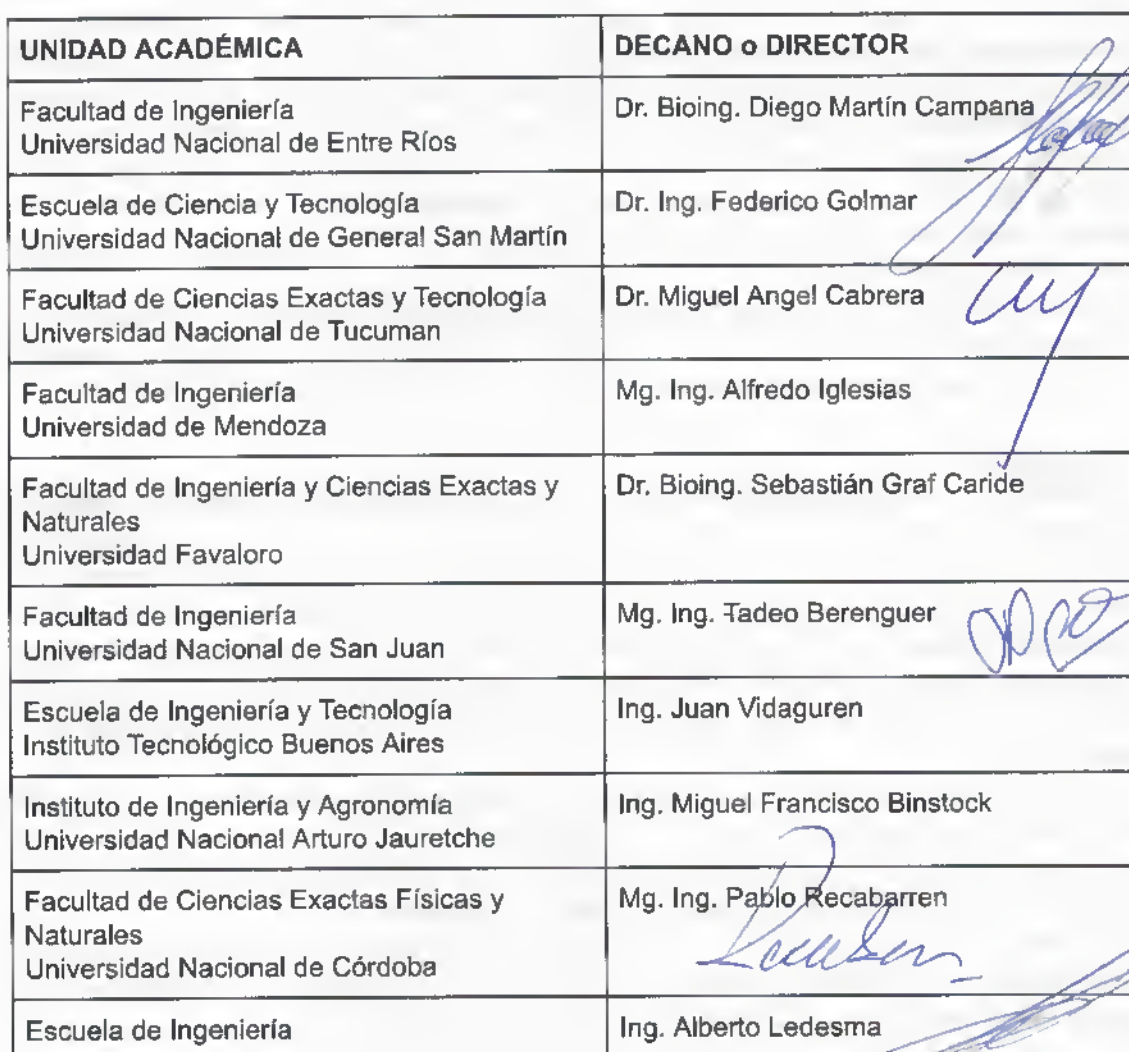 UNIDAD ACADÉMICA
DECANO o DIRECTOR
Facultad de Ingeniería
Universidad Nacional de Entre Ríos
Dr. Bioing. Diego Martín Campana
Escuela de Ciencia y Tecnología
Universidad Nacional de General San Martín
Dr. Ing. Federico Golmar
Facultad de Ciencias Exactas y Tecnología
Universidad Nacional de Tucuman
Dr. Miguel Angel Cabrera
Facultad de Ingeniería
Universidad de Mendoza
Mg. Ing. Alfredo Iglesias
Facultad de Ingeniería y Ciencias Exactas y
Naturales
Universidad Favaloro
Dr. Bioing. Sebastián Graf Caride
Facultad de Ingeniería
Universidad Nacional de San Juan
Mg. Ing. Tadeo Berenguer
Escuela de Ingeniería y Tecnología
Instituto Tecnológico Buenos Aires
Ing. Juan Vidaguren
Instituto de Ingeniería y Agronomía
Universidad Nacional Arturo Jauretche
Ing. Miguel Francisco Binstock
Facultad de Ciencias Exactas Físicas y
Naturales
Universidad Nacional de Córdoba
Mg. Ing. Pablo Recabarren
Escuela de Ingeniería
Ing. Alberto Ledesma